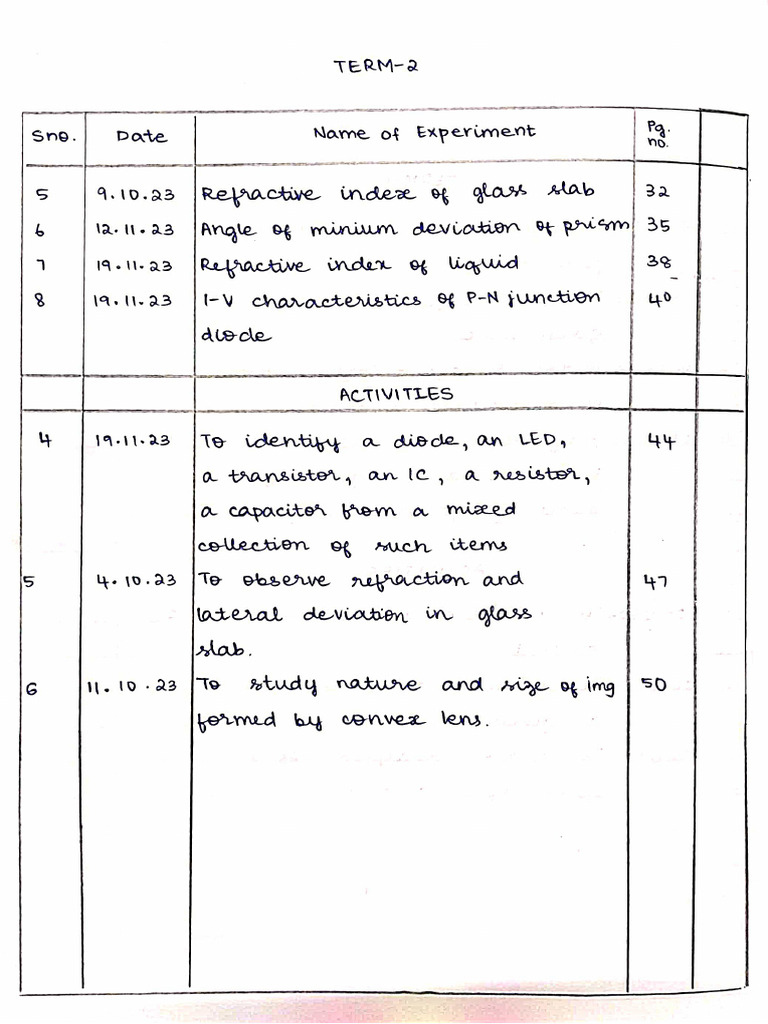 TERM-2
Sno. Date Name of Experiment Pg. no.
5 9.10.23 Refractive index of glass slab 32
6 12.11.23 Angle of minium deviation of prism 35
7 19.11.23 Refractive index of liquid 38
8 19.11.23 I-V characteristics of P-N junction 40
diode
ACTIVITIES
4 19.11.23 To identify a diode, an LED, 44
a transistor, an IC, a resistor,
a capacitor from a mixed
collection of such items
5 4.10.23 To observe refraction and 47
lateral deviation in glass
slab.
6 11.10.23 To study nature and size of img 50
formed by convex lens.